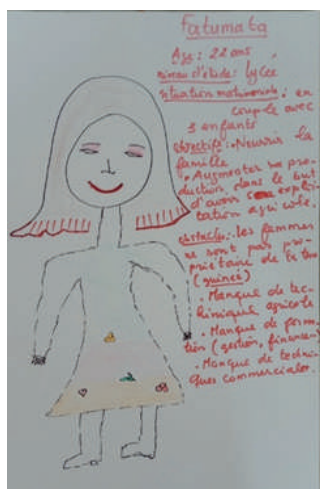 Fatumata
Age : 22 ans
niveau d'étude : Lycée
situation matrimoniale : en
couple avec
3 enfants
objectifs : Nourrir la
famille
• Augmenter sa pro-
duction, dans le but
d'avoir son exploi-
tation agricole.
obstacles : les femmes
ne sont pas pro-
priétaire de la terre
(guinée)
• Manque de tec-
hnique agricole
• Manque de forma-
tion (gestion, finances)
• Manque de techni-
ques commerciales.